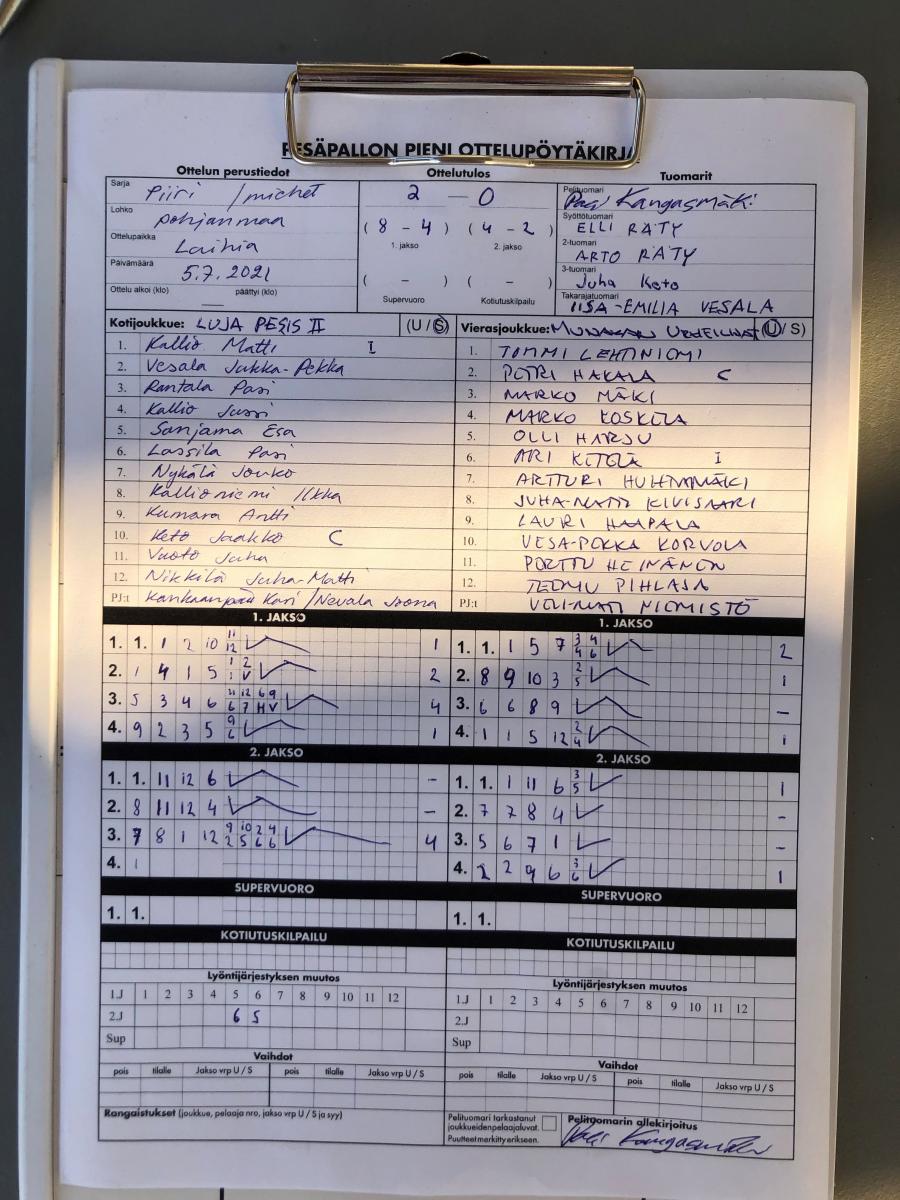 PESÄPALLON PIENI OTTELUPÖYTÄKIRJA
Ottelun perustiedot
Sarja Piiri / miehet
Lohko Pohjanmaa
Ottelupaikka Laihia
Päivämäärä 5.7.2021
Ottelu alkoi (klo) päättyi (klo)
Ottelutulos
2 — 0
( 8 - 4 ) ( 4 - 2 )
1. jakso 2. jakso
( - ) ( - )
Supervuoro Kotiutuskilpailu
Tuomarit
Pelituomari Kangasmäki
Syöttötuomari ELLI RÄTY
2-tuomari ARTO RÄTY
3-tuomari Juha Keto
Takarajatuomari IISA-EMILIA VESALA
Kotijoukkue: LUJA PESIS II (U / S)
1. Kallio Matti I
2. Vesala Jukka-Pekka
3. Rantala Pasi
4. Kallio Jussi
5. Sanjama Esa
6. Lassila Pasi
7. Nykälä Jouko
8. Kallioniemi Ilkka
9. Kumara Antti
10. Keto Jaakko C
11. Vuoto Juha
12. Nikkilä Juha-Matti
PJ:t Kankaanpää Kari / Nevala Joona
Vierasjoukkue: (U / S)
1. TOMMI LEHTINIEMI
2. PETRI HAKALA C
3. MARKO MÄKI
4. MARKO KOSKELA
5. OLLI HARJU
6. ARI KETELÄ I
7. ARTTURI HUHTAMÄKI
8. JUHA-MATTI KIVISAARI
9. LAURI HAAPALA
10. VESA-PEKKA KORVOLA
11. PERTTU HEINÄNEN
12. TEEMU PIHLAJA
PJ:t VELI-MATTI NIEMISTÖ
1. JAKSO
1. 1. 1 2 10 11 12 1
2. 1 4 1 5 1 2 1 V 2
3. 5 3 4 6 11 12 6 9 6 7 H V 4
4. 9 2 3 5 9 6 1
1. JAKSO
1. 1. 1 5 7 3 4 4 6 2
2. 8 9 10 3 2 5 1
3. 6 6 8 9 -
4. 1 1 5 12 2 4 1
2. JAKSO
1. 1. 11 12 6 -
2. 8 11 12 4 -
3. 7 8 1 12 9 10 2 4 2 5 6 6 4
4. 1
2. JAKSO
1. 1. 1 11 6 3 5 1
2. 7 7 8 4 -
3. 5 6 7 1 -
4. 2 2 9 6 3 6 1
SUPERVUORO
1. 1.
SUPERVUORO
1. 1.
KOTIUTUSKILPAILU
KOTIUTUSKILPAILU
Lyöntijärjestyksen muutos
1.J 1 2 3 4 5 6 7 8 9 10 11 12
2.J 6 5
Sup
Lyöntijärjestyksen muutos
1.J 1 2 3 4 5 6 7 8 9 10 11 12
2.J
Sup
Vaihdot
pois tilalle Jakso vrp U / S pois tilalle Jakso vrp U / S
Vaihdot
pois tilalle Jakso vrp U / S pois tilalle Jakso vrp U / S
Rangaistukset (joukkue, pelaaja nro, jakso vrp U / S ja syy)
Pelituomari tarkastanut
joukkueidenpelaajaluvat.
Puutteetmerkittyerikseen.
Pelituomarin allekirjoitus
Kangasmäki